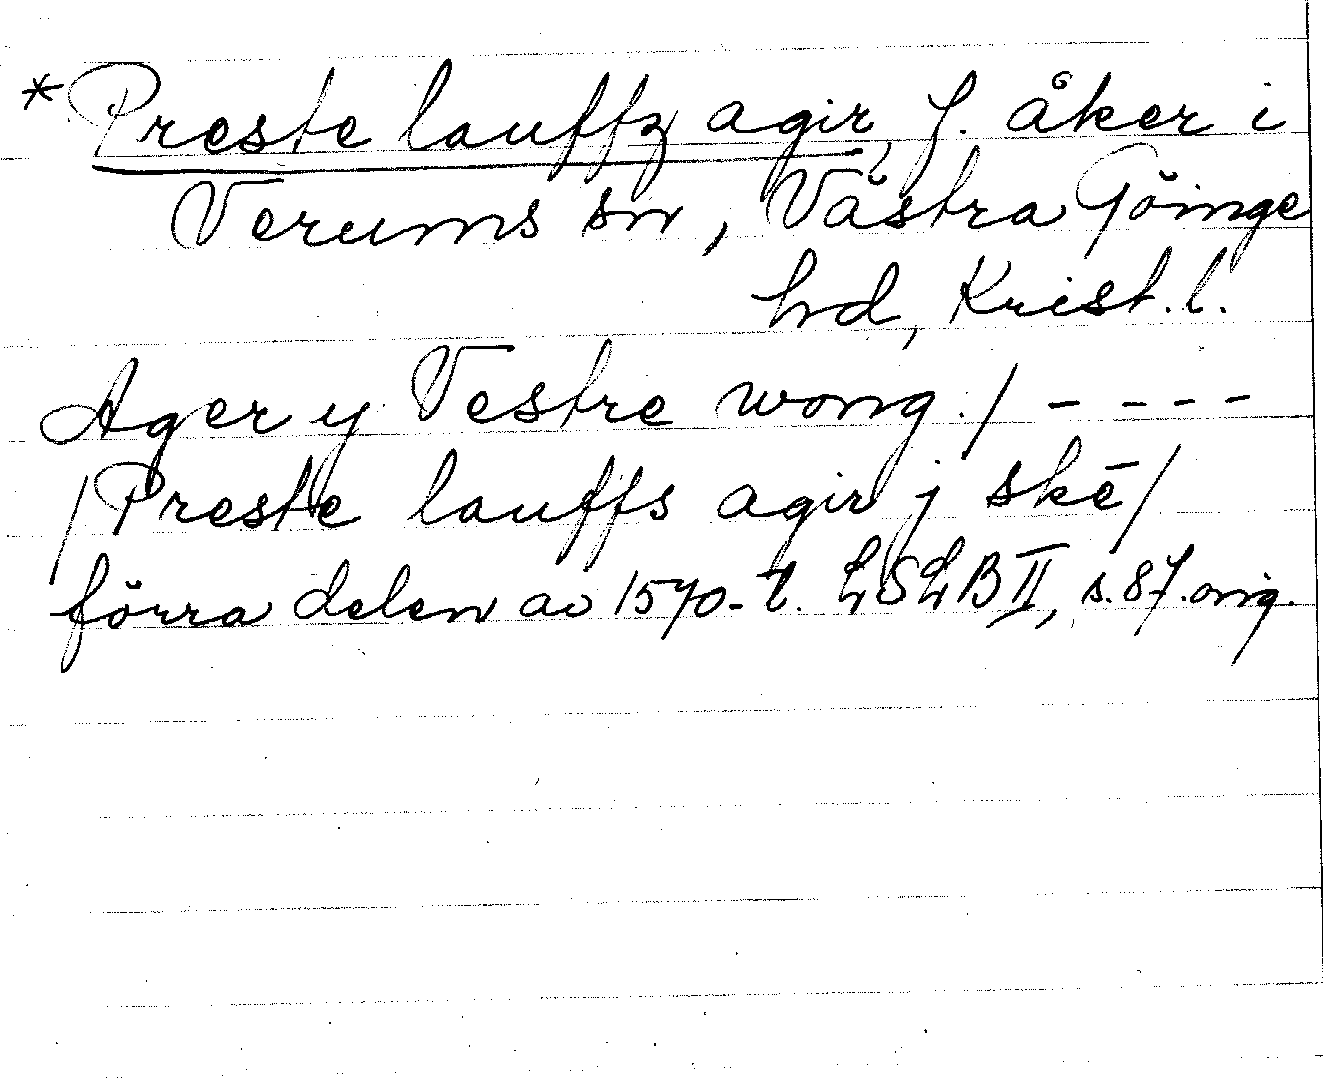 *Preste lauffz agir, f. åker i
Verums sn, Västra Göinge
hd, Krist.l.
Ager y Vestre wong. / - - - -
/Preste lauffs agir j skē/
förra delen av 1570-t. LSLB II, s. 87. orig.